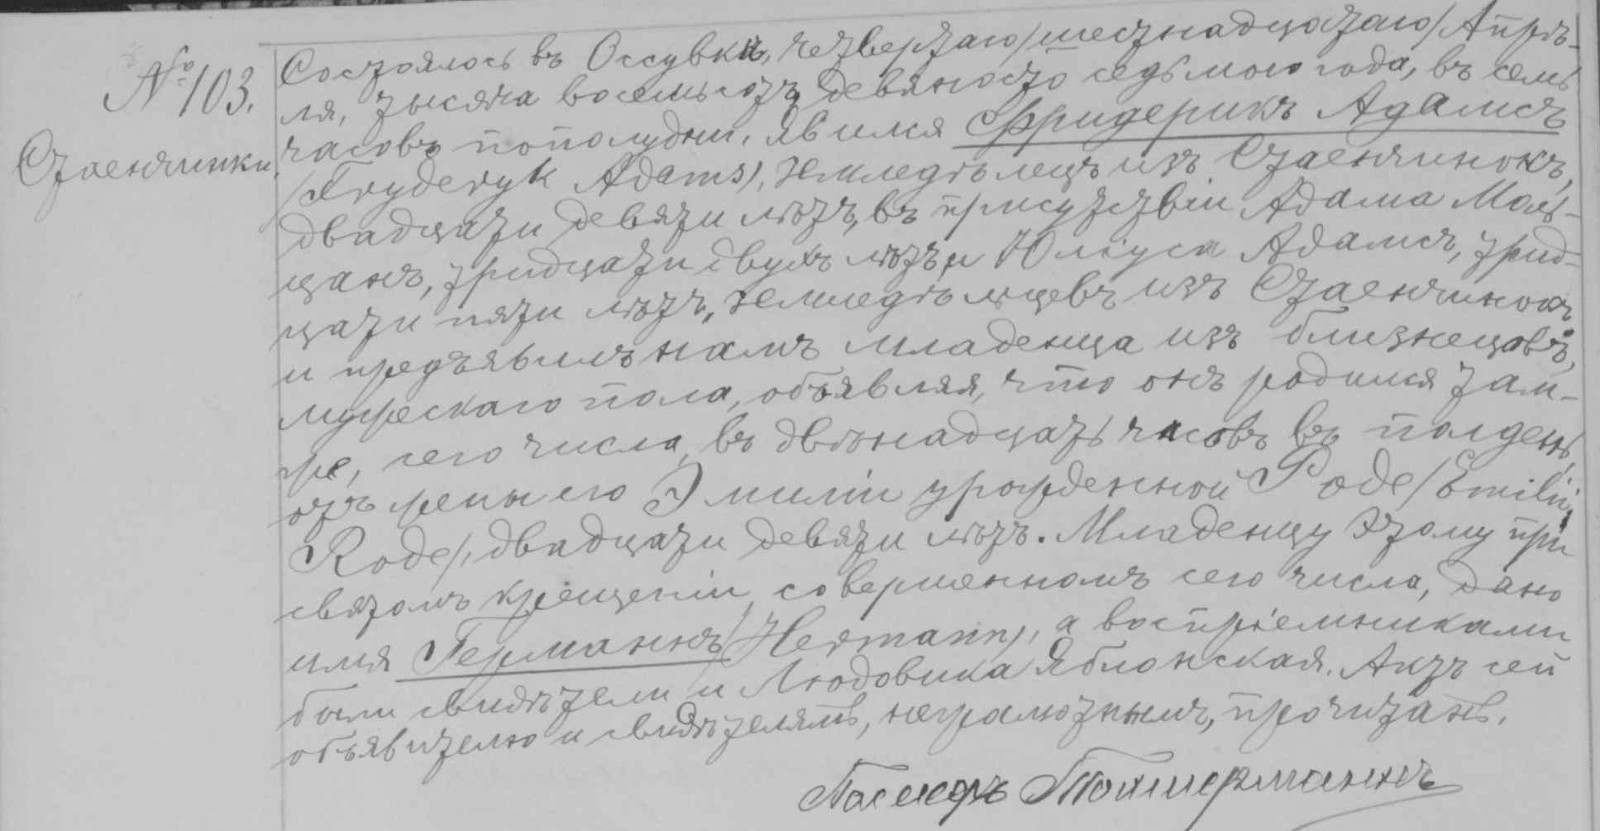 № 103.
Стаенчинки.
Состоялось въ Оссувкѣ, четвертаго/шестнадцатаго/Апрѣ-
ля, тысяча восемьсотъ девяносто седьмого года, въ семь
часовъ пополудни. Явился Фридерикъ Адамсъ
/Fryderyk Adams/, земледѣлецъ изъ Стаенчинокъ,
двадцати девяти лѣтъ, въ присутствіи Адама
тридцати двухъ лѣтъ и Юліуса Адамсъ, трид-
цати пяти лѣтъ, земледѣльцевъ изъ Стаенчинокъ
и предъявилъ намъ младенца изъ близнецовъ,
мужескаго пола, объявляя, что онъ родился там-
же, сего числа, въ двѣнадцать часовъ въ полдень,
отъ жены его Эмиліи урожденной Роде/Emilii
Rode/, двадцати девяти лѣтъ. Младенцу этому при
святомъ крещеніи, совершенномъ сего числа, дано
имя Германнъ/Hermann/, а воспріемниками
были свидѣтели и Людовика Яблонская. Актъ сей
объявителю и свидѣтелямъ, неграмотнымъ, прочитанъ.
Пасторъ